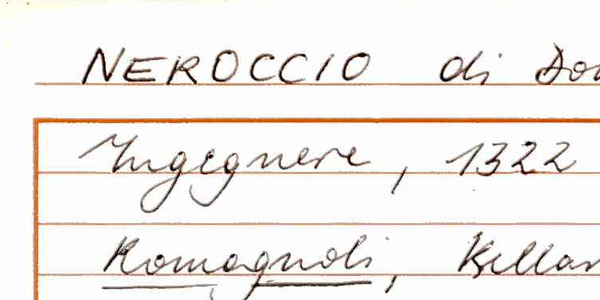 NEROCCIO di
Ingegnere, 1322
Romagnoli,